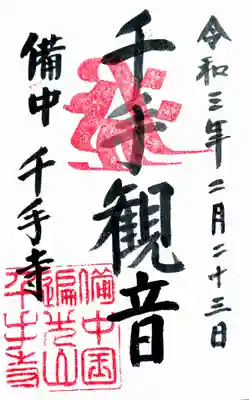 令和三年二月二十三日
千手観音
備中 千手寺
備中国
遍照山
千手寺